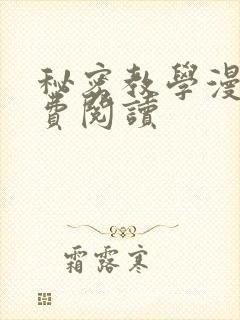 秘密教學漫
費閱讀
霜露寒